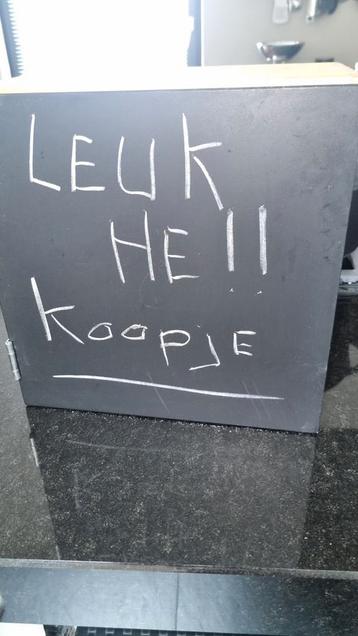 LEUK
HE!!
KOOPjE